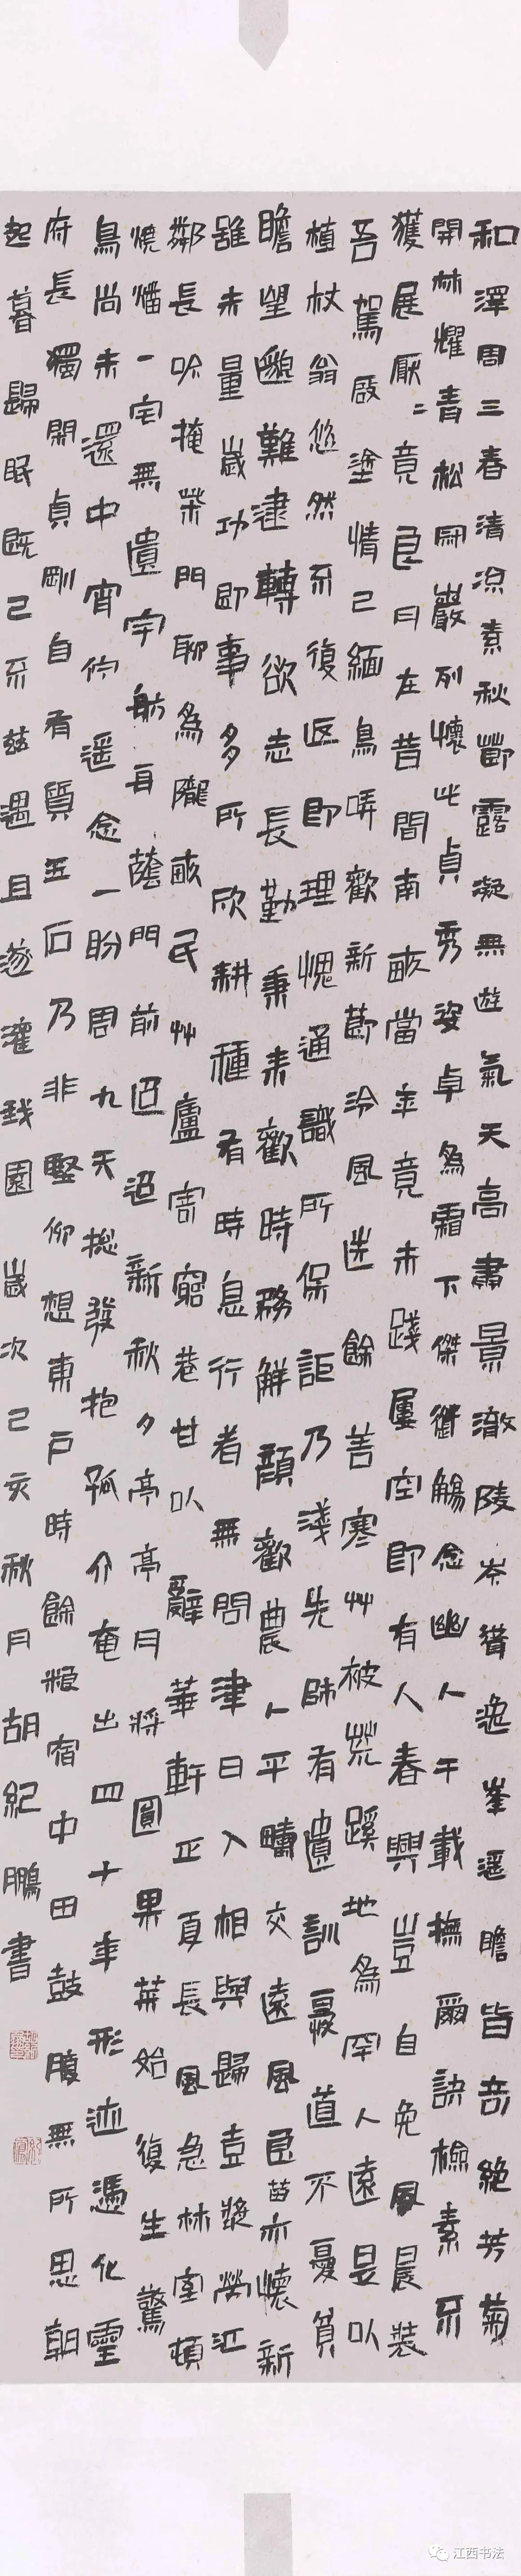 和澤周三春清涼素秋節露凝無遊氣天高肅景澈陵岑聳逸峯遥瞻皆奇絕芳菊
開林耀青松冠巖列懷此貞秀姿卓為霜下傑銜觴念幽人千載撫爾訣檢素不
獲展厭厭竟良月在昔聞南畝當年竟未踐屢空即有人春興豈自免夙晨裝
吾駕啟塗情已緬鳥哢歡新節泠風送餘善寒艸被荒蹊地為罕人遠是以
植杖翁悠然不復返即理愧通識所保詎乃淺先師有遺訓憂道不憂貧
瞻望邈難逮轉欲志長勤秉耒歡時務解顏歡農人平疇交遠風良苗亦懷新
雖未量歲功即事多所欣耕種有時息行者無問津日入相與歸壺漿勞近
鄰長吟掩柴門聊為隴畝民艸廬寄窮巷甘以辭華軒正夏長風急林室頓
燒燔一宅無遺宇舫舟蔭門前迢迢新秋夕亭亭月將圓果菜始復生驚
鳥尚未還中宵佇遥念一盼周九天揔發抱孤介奄出四十年形迹憑化靈
府長獨閒貞剛自有質玉石乃非堅仰想東戶時餘粮宿中田鼓腹無所思朝
起暮歸眠既已不茲遇且遂灌我園歲次己亥秋月胡紀鵬書
江西书法